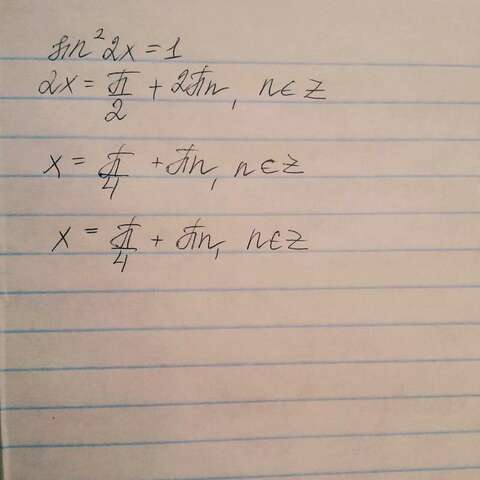 sin²2x = 1
2x = π/2 + 2πn, n∈Z
x = π/4 + πn, n∈Z
x = π/4 + πn, n∈Z